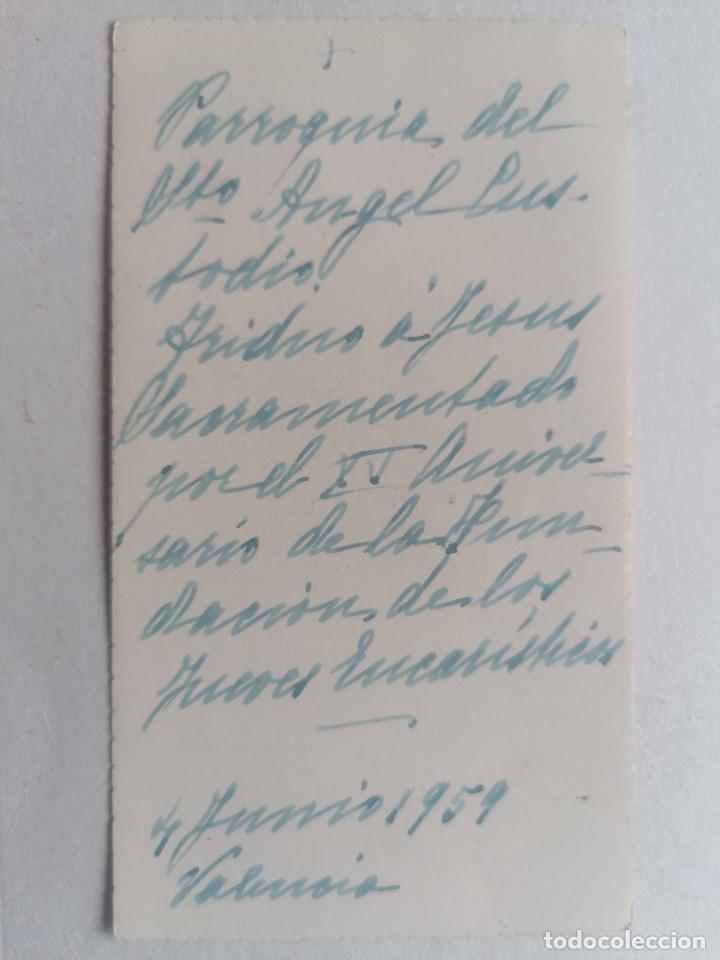 +
Parroquia del
Sto Angel Cus-
todio.
Triduo á Jesus
Sacramentado
por el XV Aniver-
sario de la Fun-
dacion de los
Jueves Eucarísticos
4 Junio 1959
Valencia
todocoleccion.net